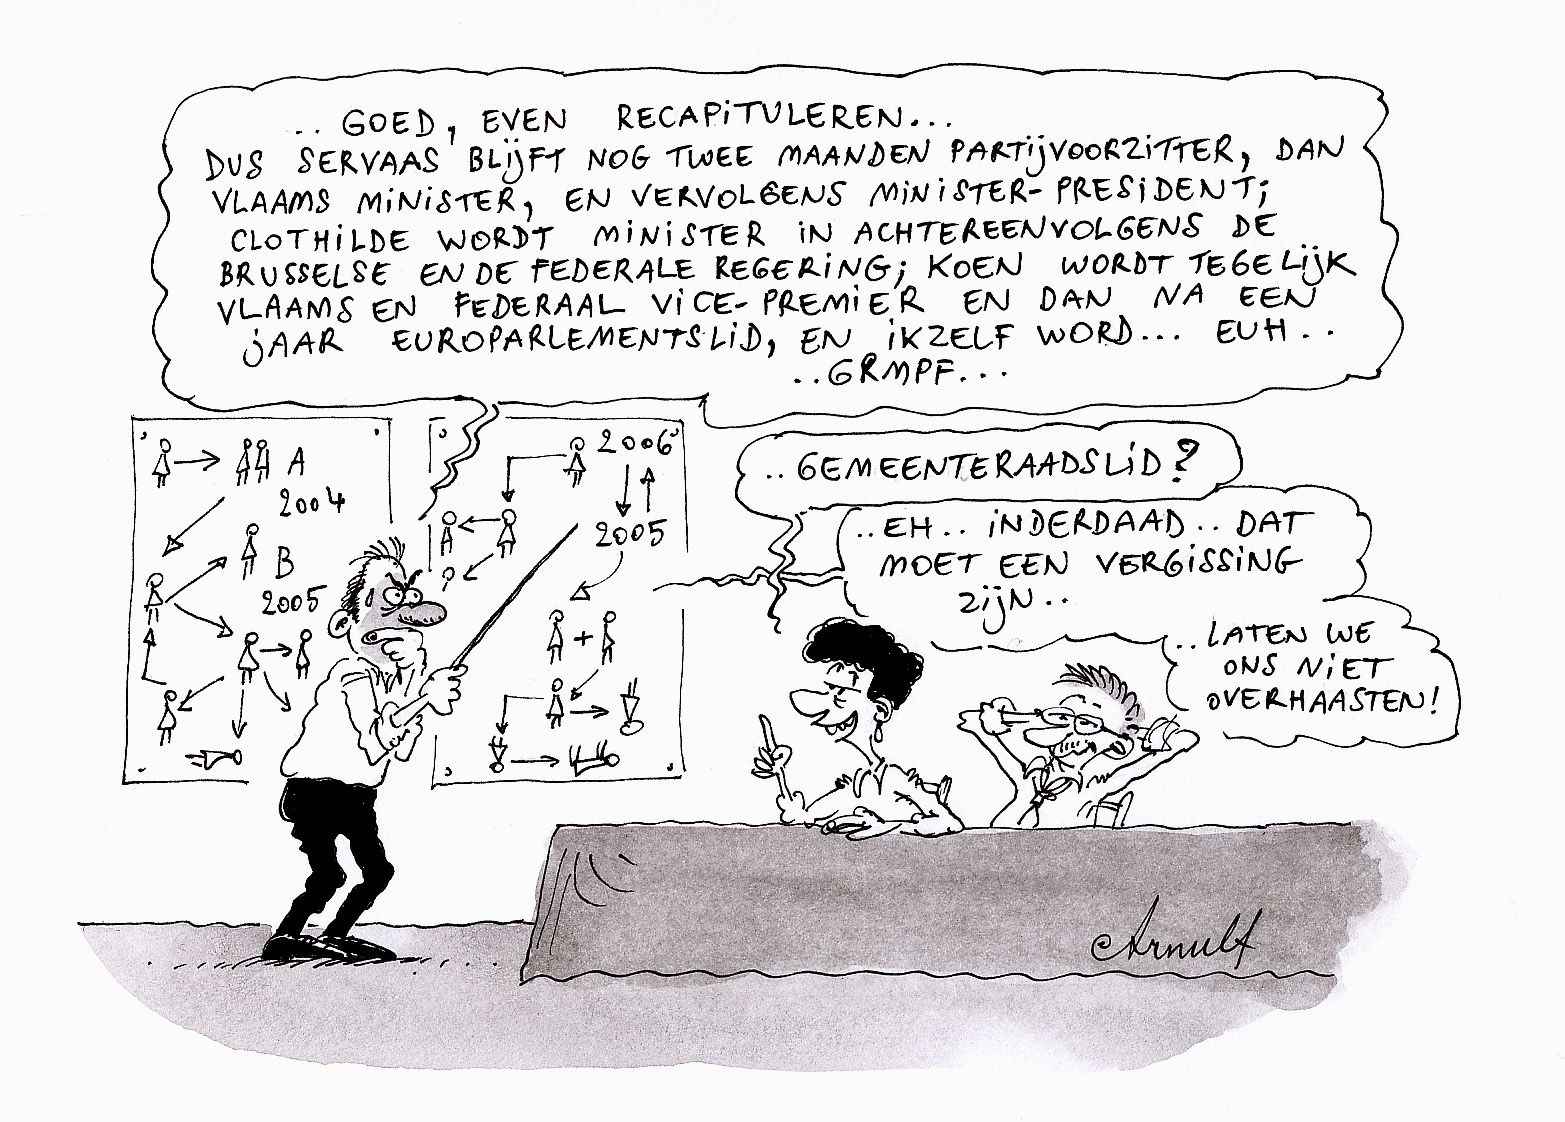 .. GOED, EVEN RECAPITULEREN...
DUS SERVAAS BLIJFT NOG TWEE MAANDEN PARTIJVOORZITTER, DAN
VLAAMS MINISTER, EN VERVOLGENS MINISTER-PRESIDENT;
CLOTHILDE WORDT MINISTER IN ACHTEREENVOLGENS DE
BRUSSELSE EN DE FEDERALE REGERING; KOEN WORDT TEGELIJK
VLAAMS EN FEDERAAL VICE-PREMIER EN DAN NA EEN
JAAR EUROPARLEMENTSLID, EN IKZELF WORD... EUH..
..GRMPF...
..GEMEENTERAADSLID?
..EH.. INDERDAAD.. DAT
MOET EEN VERGISSING
ZIJN..
..LATEN WE
ONS NIET
OVERHAASTEN!
A
2004
B
2005
2006
2005
?
+
Arnulf